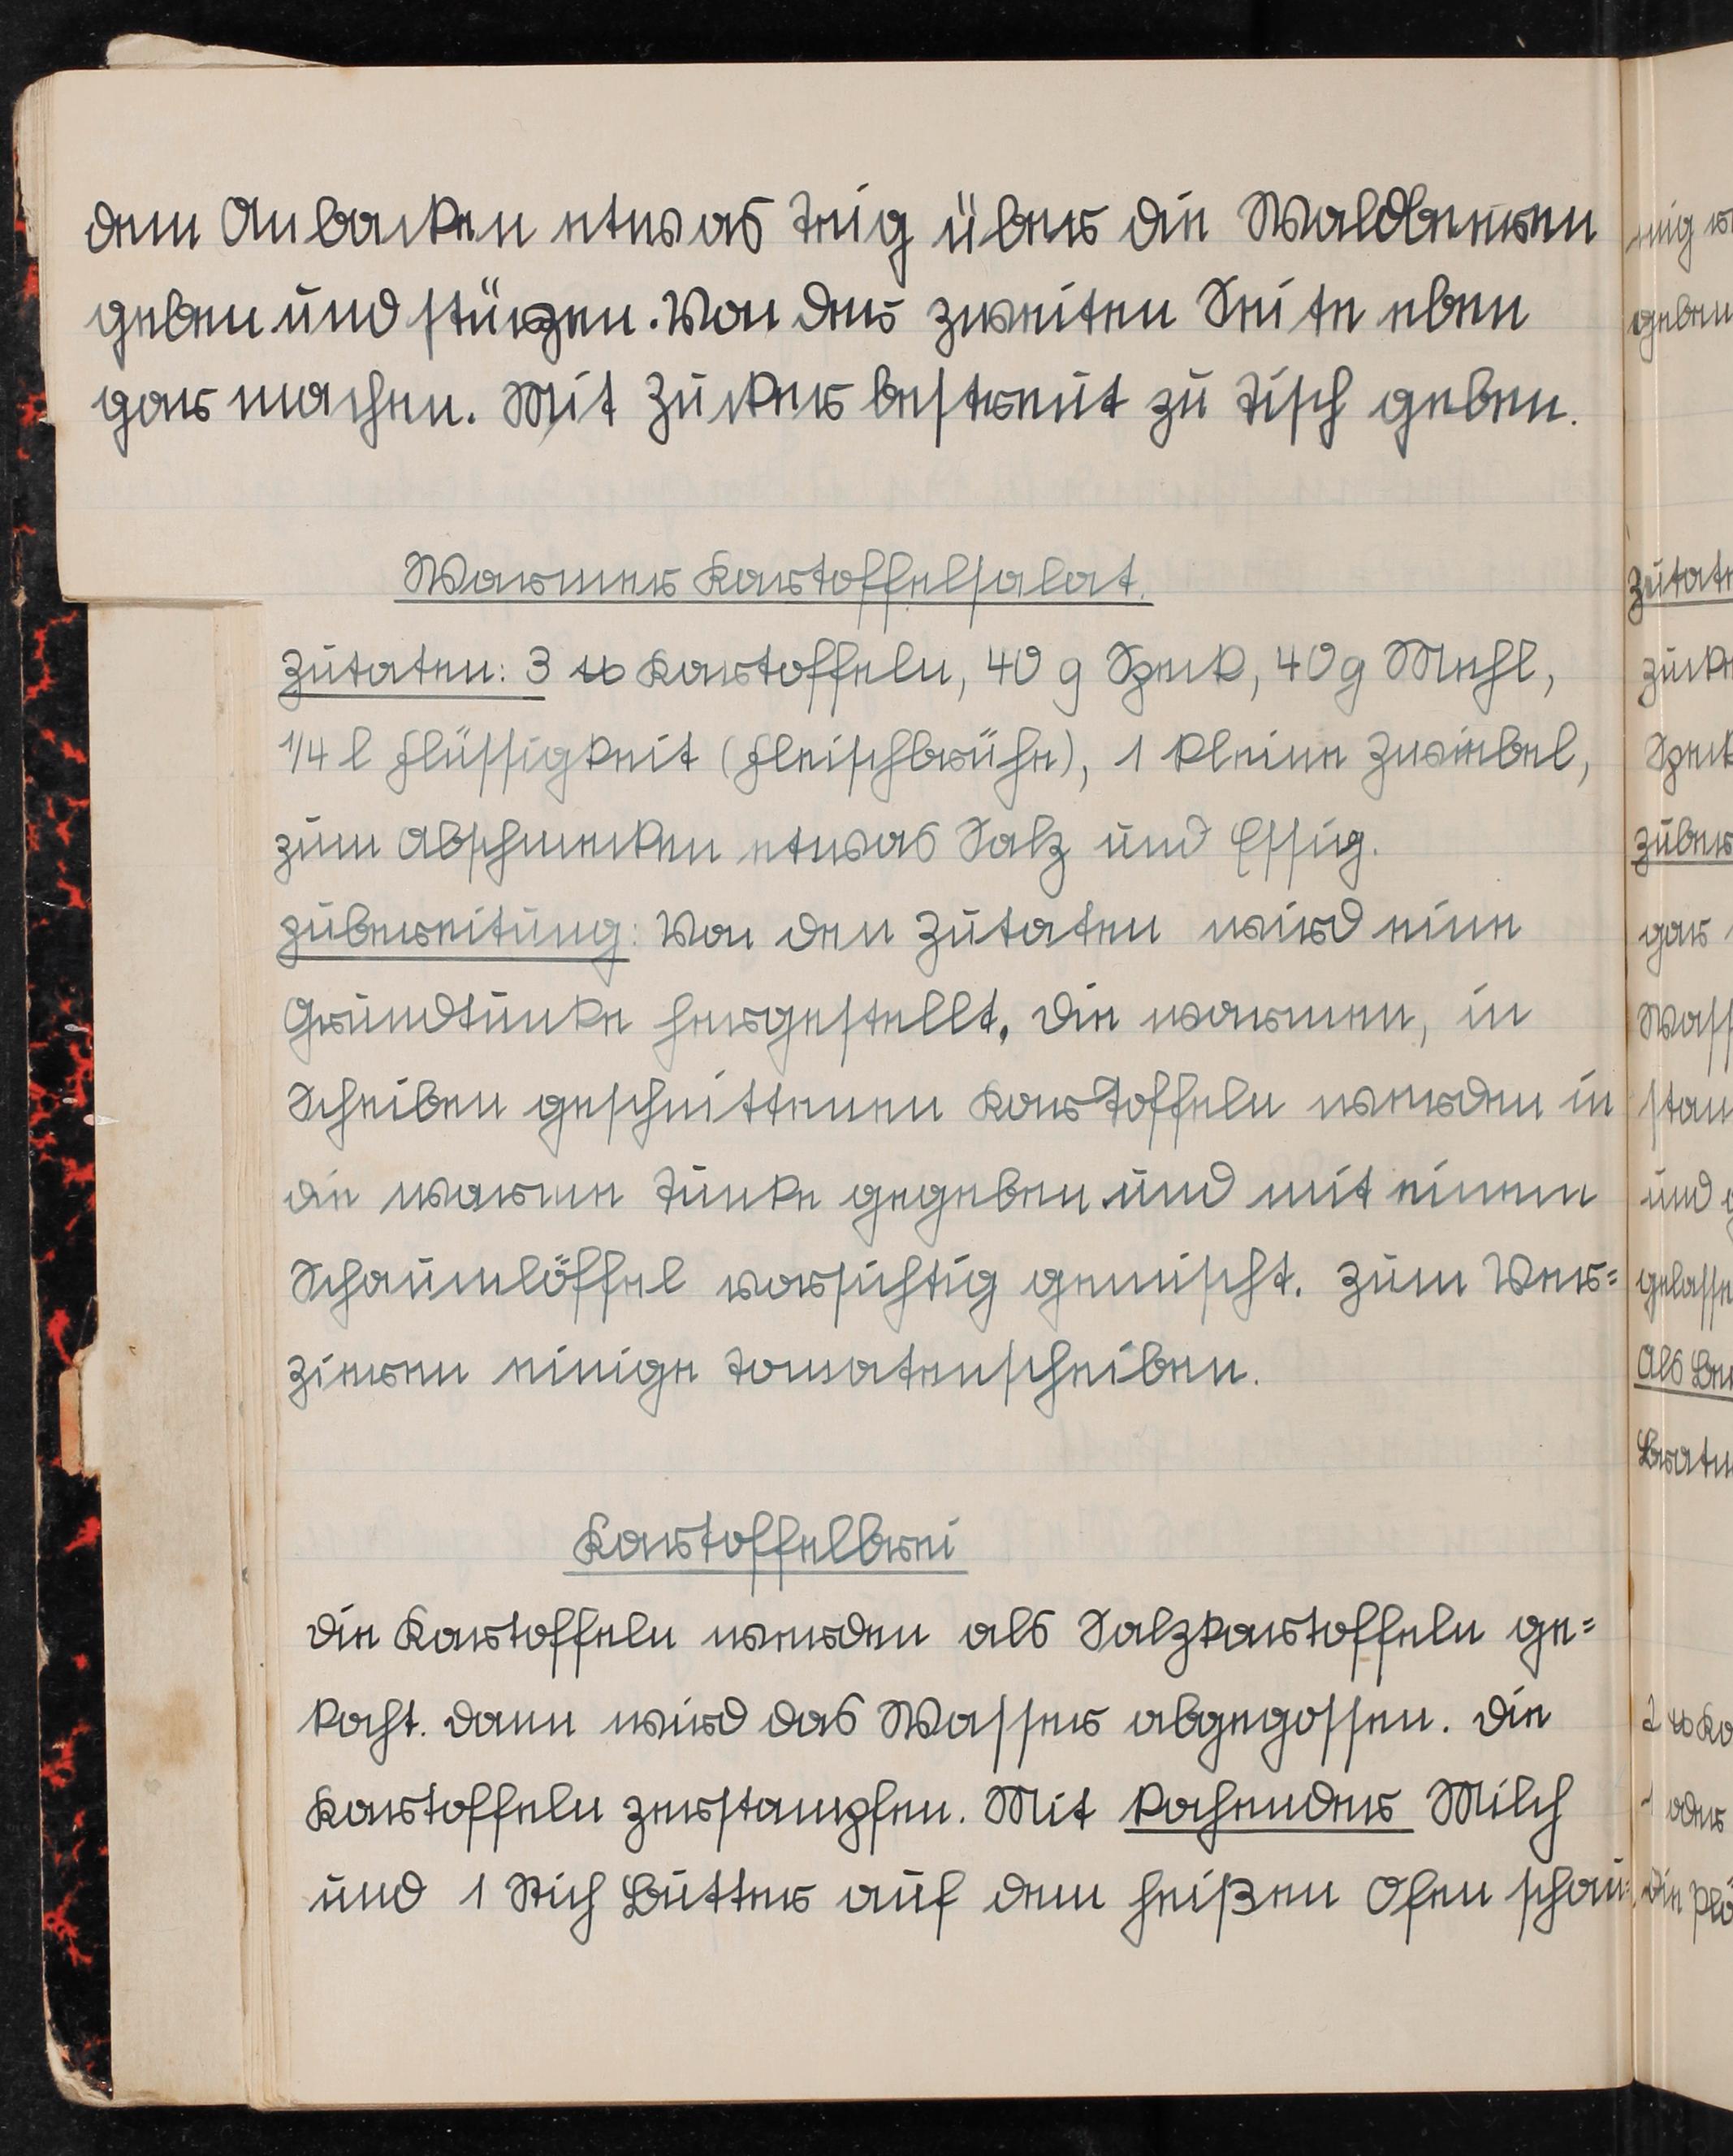 dem Anbacken etwas Teig über die Waldbeeren
geben und stürzen. Von der zweiten Seite eben
gar machen. Mit Zucker bestreut zu Tisch geben.
Warmer Kartoffelsalat.
Zutaten: 3 ℔ Kartoffeln, 40 g Speck, 40 g Mehl,
1/4 l Flüssigkeit (Fleischbrühe), 1 kleine Zwiebel,
zum Abschmecken etwas Salz und Essig.
Zubereitung: Von den Zutaten wird eine
Grundtunke hergestellt. Die warmen, in
Scheiben geschnittenen Kartoffeln werden in
die warme Tunke gegeben und mit einem
Schaumlöffel vorsichtig gemischt. Zum Ver=
zieren einige Tomatenscheiben.
Kartoffelbrei
Die Kartoffeln werden als Salzkartoffeln ge=
kocht. Dann wird das Wasser abgegossen. Die
Kartoffeln zerstampfen. Mit kochender Milch
und 1 Stich Butter auf dem heißen Ofen schau=
geben
Zutate
Zucke
Speck
Zuber
gar
Wass
stam
und g
gelasse
Als Bei
Braten
2 ℔ Ka
1 oder